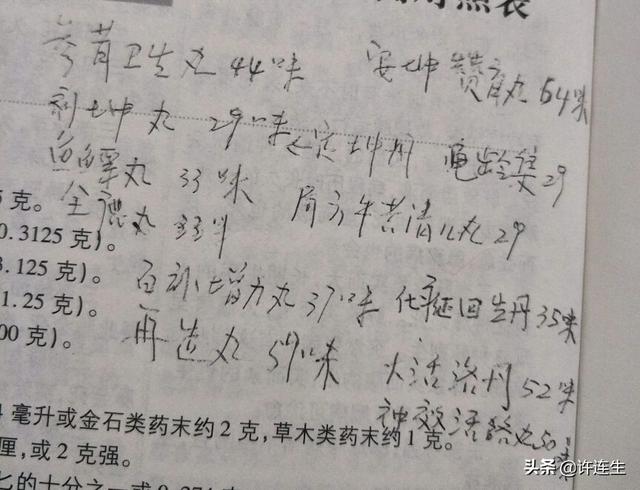 对照表
参茸卫生丸 44味 安坤赞育丸 64味
坤丸 29味 定坤丹 龟龄集 29
鱼鳔丸 33味
全鹿丸 局方牛黄清心丸 29
克。
0.3125 克)。
3.125 克)。
百补增力丸 37味 化癥回生丹 35味
1.25 克)。
再造丸 59味 大活洛丹 52味
00 克)。
神效活络丸
毫升或金石类药末约 2 克,草木类药末约 1 克。
厘,或 2 克强。
匕的十分之一或
头条 @许连生